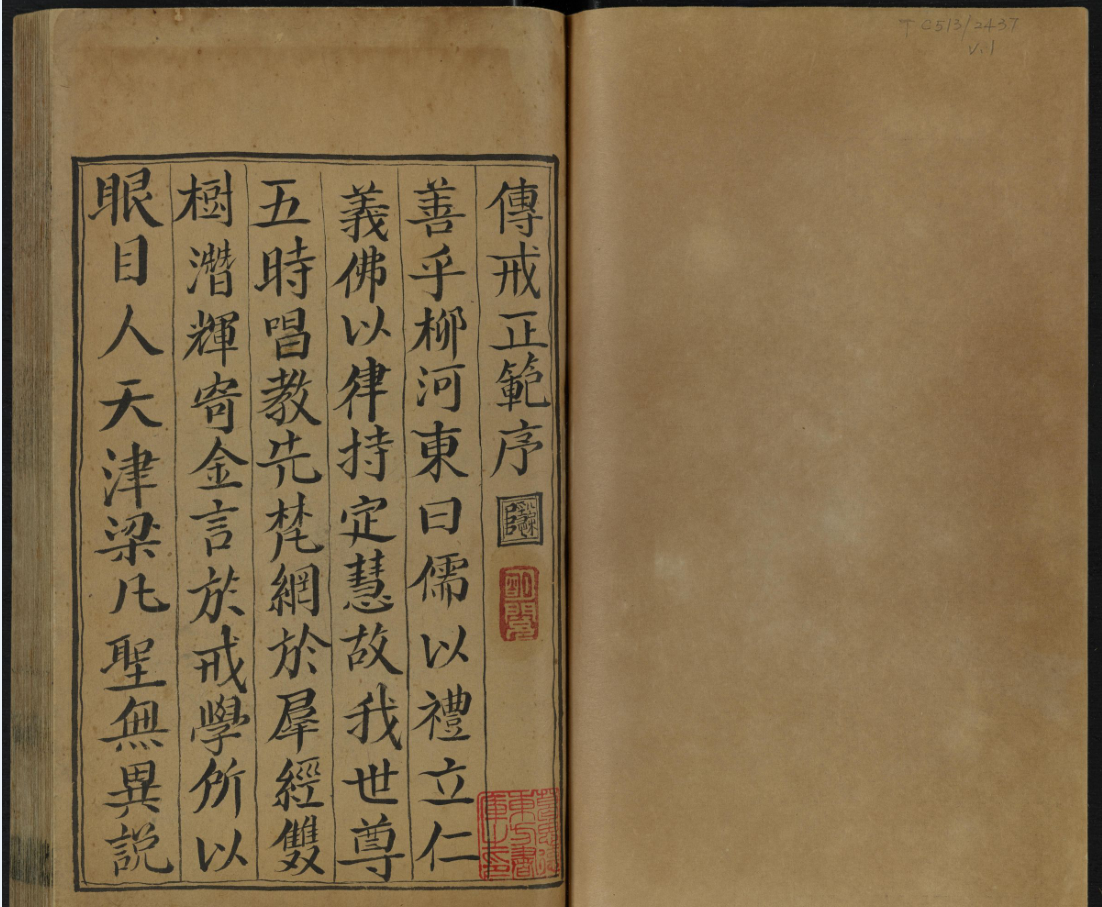 T 0513/2437
V.1
傳戒正範序
善乎柳河東曰儒以禮立仁
義佛以律持定慧故我世尊
五時唱教先梵網於羣經雙
樹潛輝寄金言於戒學所以
眼目人天津梁凡聖無異説